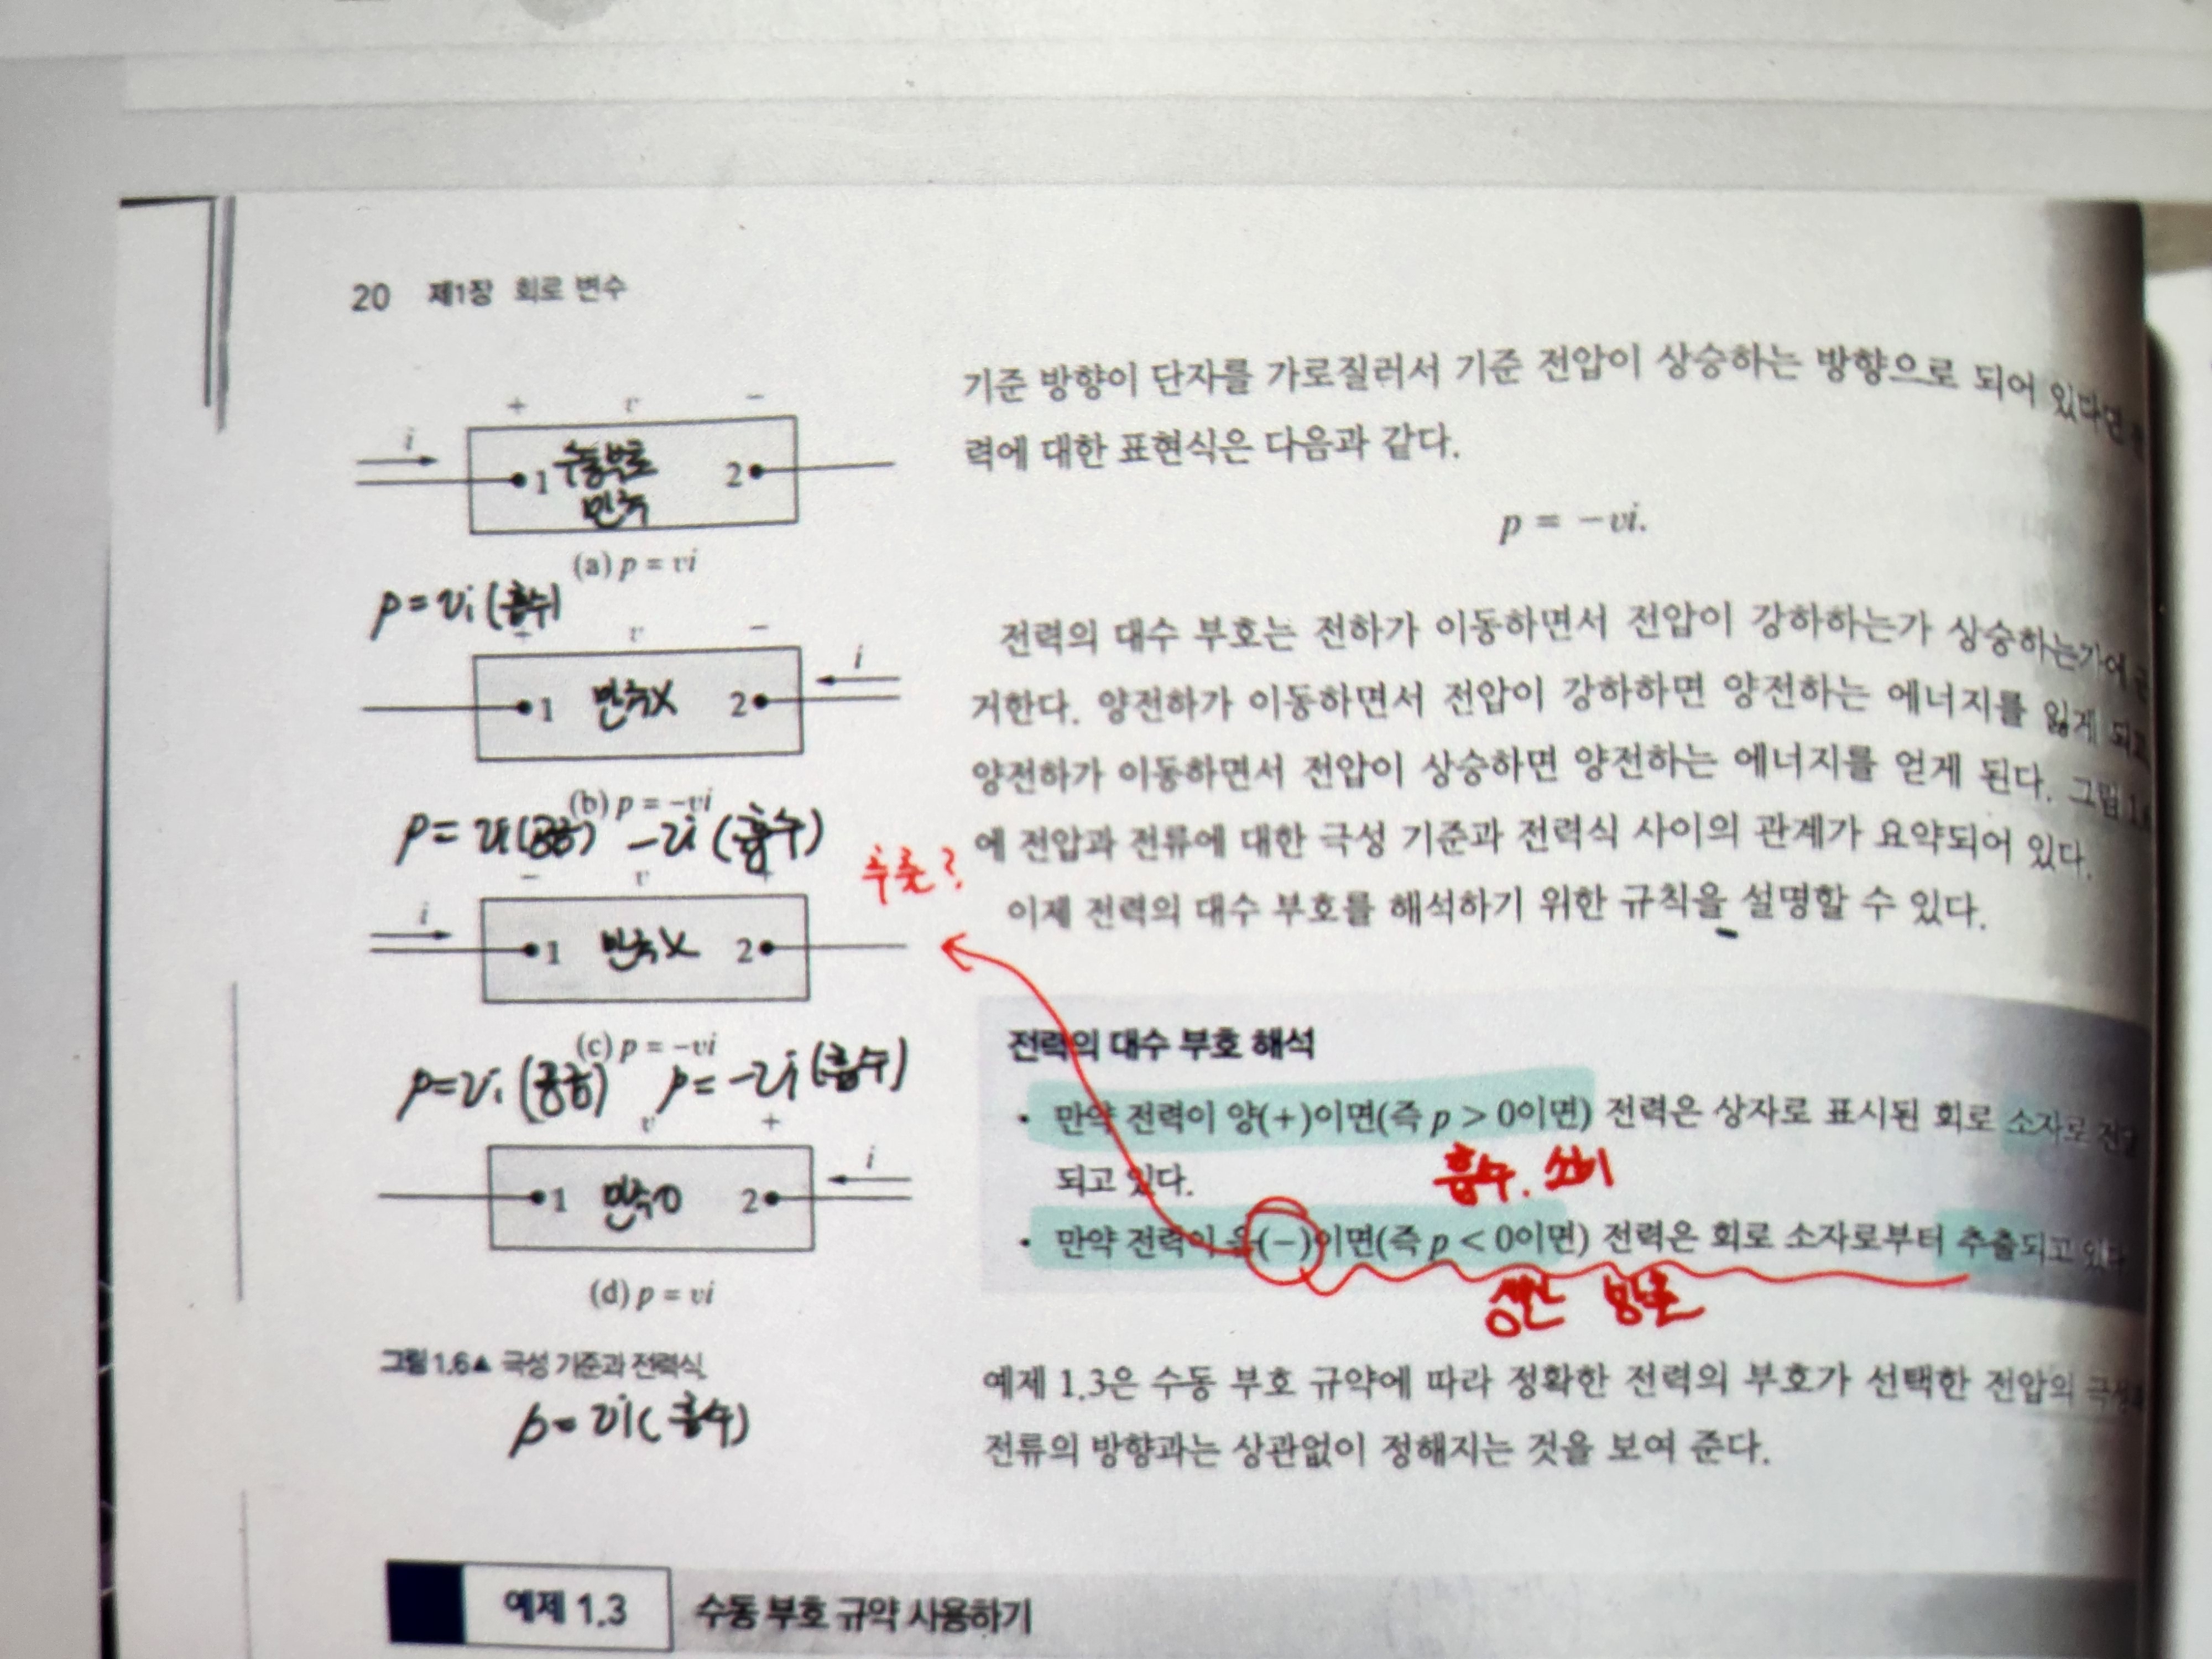 20 제1장 회로 변수
+ v −
i
1 수동부호 2
만족
(a) p = vi
p = vi (흡수)
v −
i
1 만족X 2
(b) p = −vi
p = vi (공급) −vi (흡수)
− v +
i
1 만족X 2
(c) p = −vi
p = vi (공급) p = −vi (흡수)
v +
i
1 만족O 2
(d) p = vi
그림 1.6▲ 극성 기준과 전력식.
p = vi (흡수)
기준 방향이 단자를 가로질러서 기준 전압이 상승하는 방향으로 되어 있다면
력에 대한 표현식은 다음과 같다.
p = −vi.
전력의 대수 부호는 전하가 이동하면서 전압이 강하하는가 상승하는가에
거한다. 양전하가 이동하면서 전압이 강하하면 양전하는 에너지를 잃게 되고
양전하가 이동하면서 전압이 상승하면 양전하는 에너지를 얻게 된다. 그림 1.6
에 전압과 전류에 대한 극성 기준과 전력식 사이의 관계가 요약되어 있다.
추출?
이제 전력의 대수 부호를 해석하기 위한 규칙을 설명할 수 있다.
전력의 대수 부호 해석
• 만약 전력이 양(+)이면(즉 p > 0이면) 전력은 상자로 표시된 회로 소자로 전달
되고 있다.
흡수. 소비
• 만약 전력이 음(−)이면(즉 p < 0이면) 전력은 회로 소자로부터 추출되고 있다
생산 방출
예제 1.3은 수동 부호 규약에 따라 정확한 전력의 부호가 선택한 전압의 극성과
전류의 방향과는 상관없이 정해지는 것을 보여 준다.
예제 1.3 수동 부호 규약 사용하기